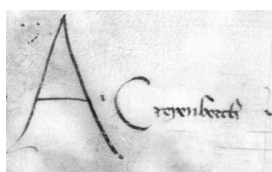 A. Crepenberch